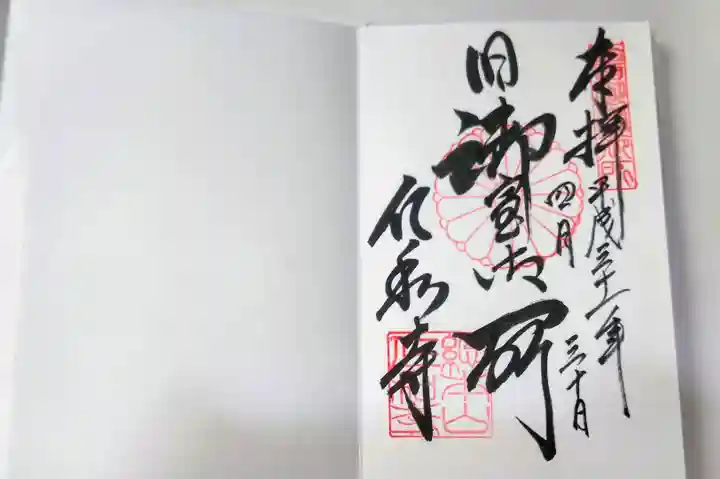 奉拝
平成三十一年
四月
三十日
旧御室御所
仁和寺